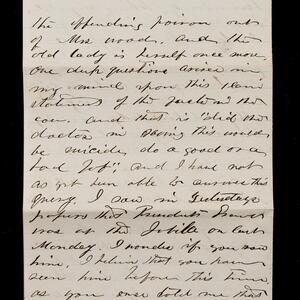 the offending poison out
of Mrs Wood, and the
old lady is herself once more.
One deep question arises in
my mind upon this
statement of the facts in the
case. and that is "did the
doctor in this
be suicide, do a good or a
bad job"; and I have not
as yet been able to answer this
query. I saw in Yesterdays
papers that President
was at the on last
Monday. I wonder if you saw
him, I believe that you have
seen him before this time,
as you once told me that